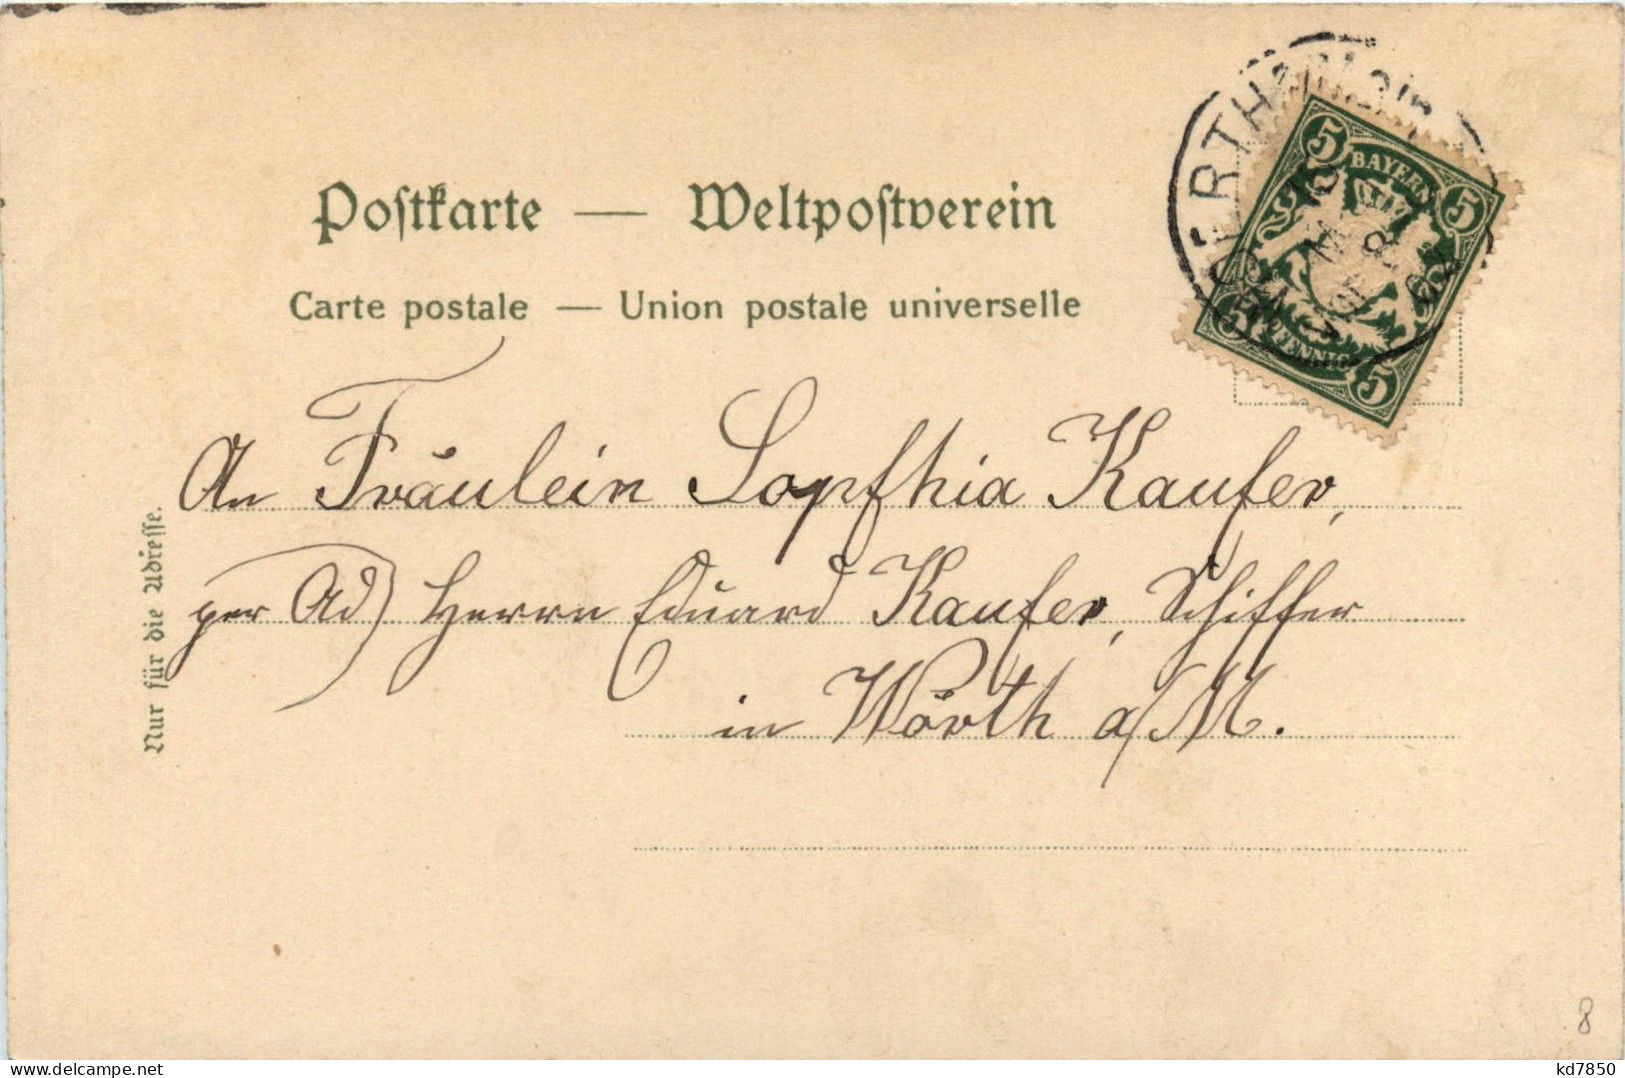 Postkarte — Weltpostverein
Carte postale — Union postale universelle
BAYERN
5 5
5 5
PFENNIG
An Fräulein Sopfhia Kaufer,
per Ad) Herrn Eduard Kaufer, Schiffer
in Wörth a/M.
Nur für die Adresse.
8
kd7850